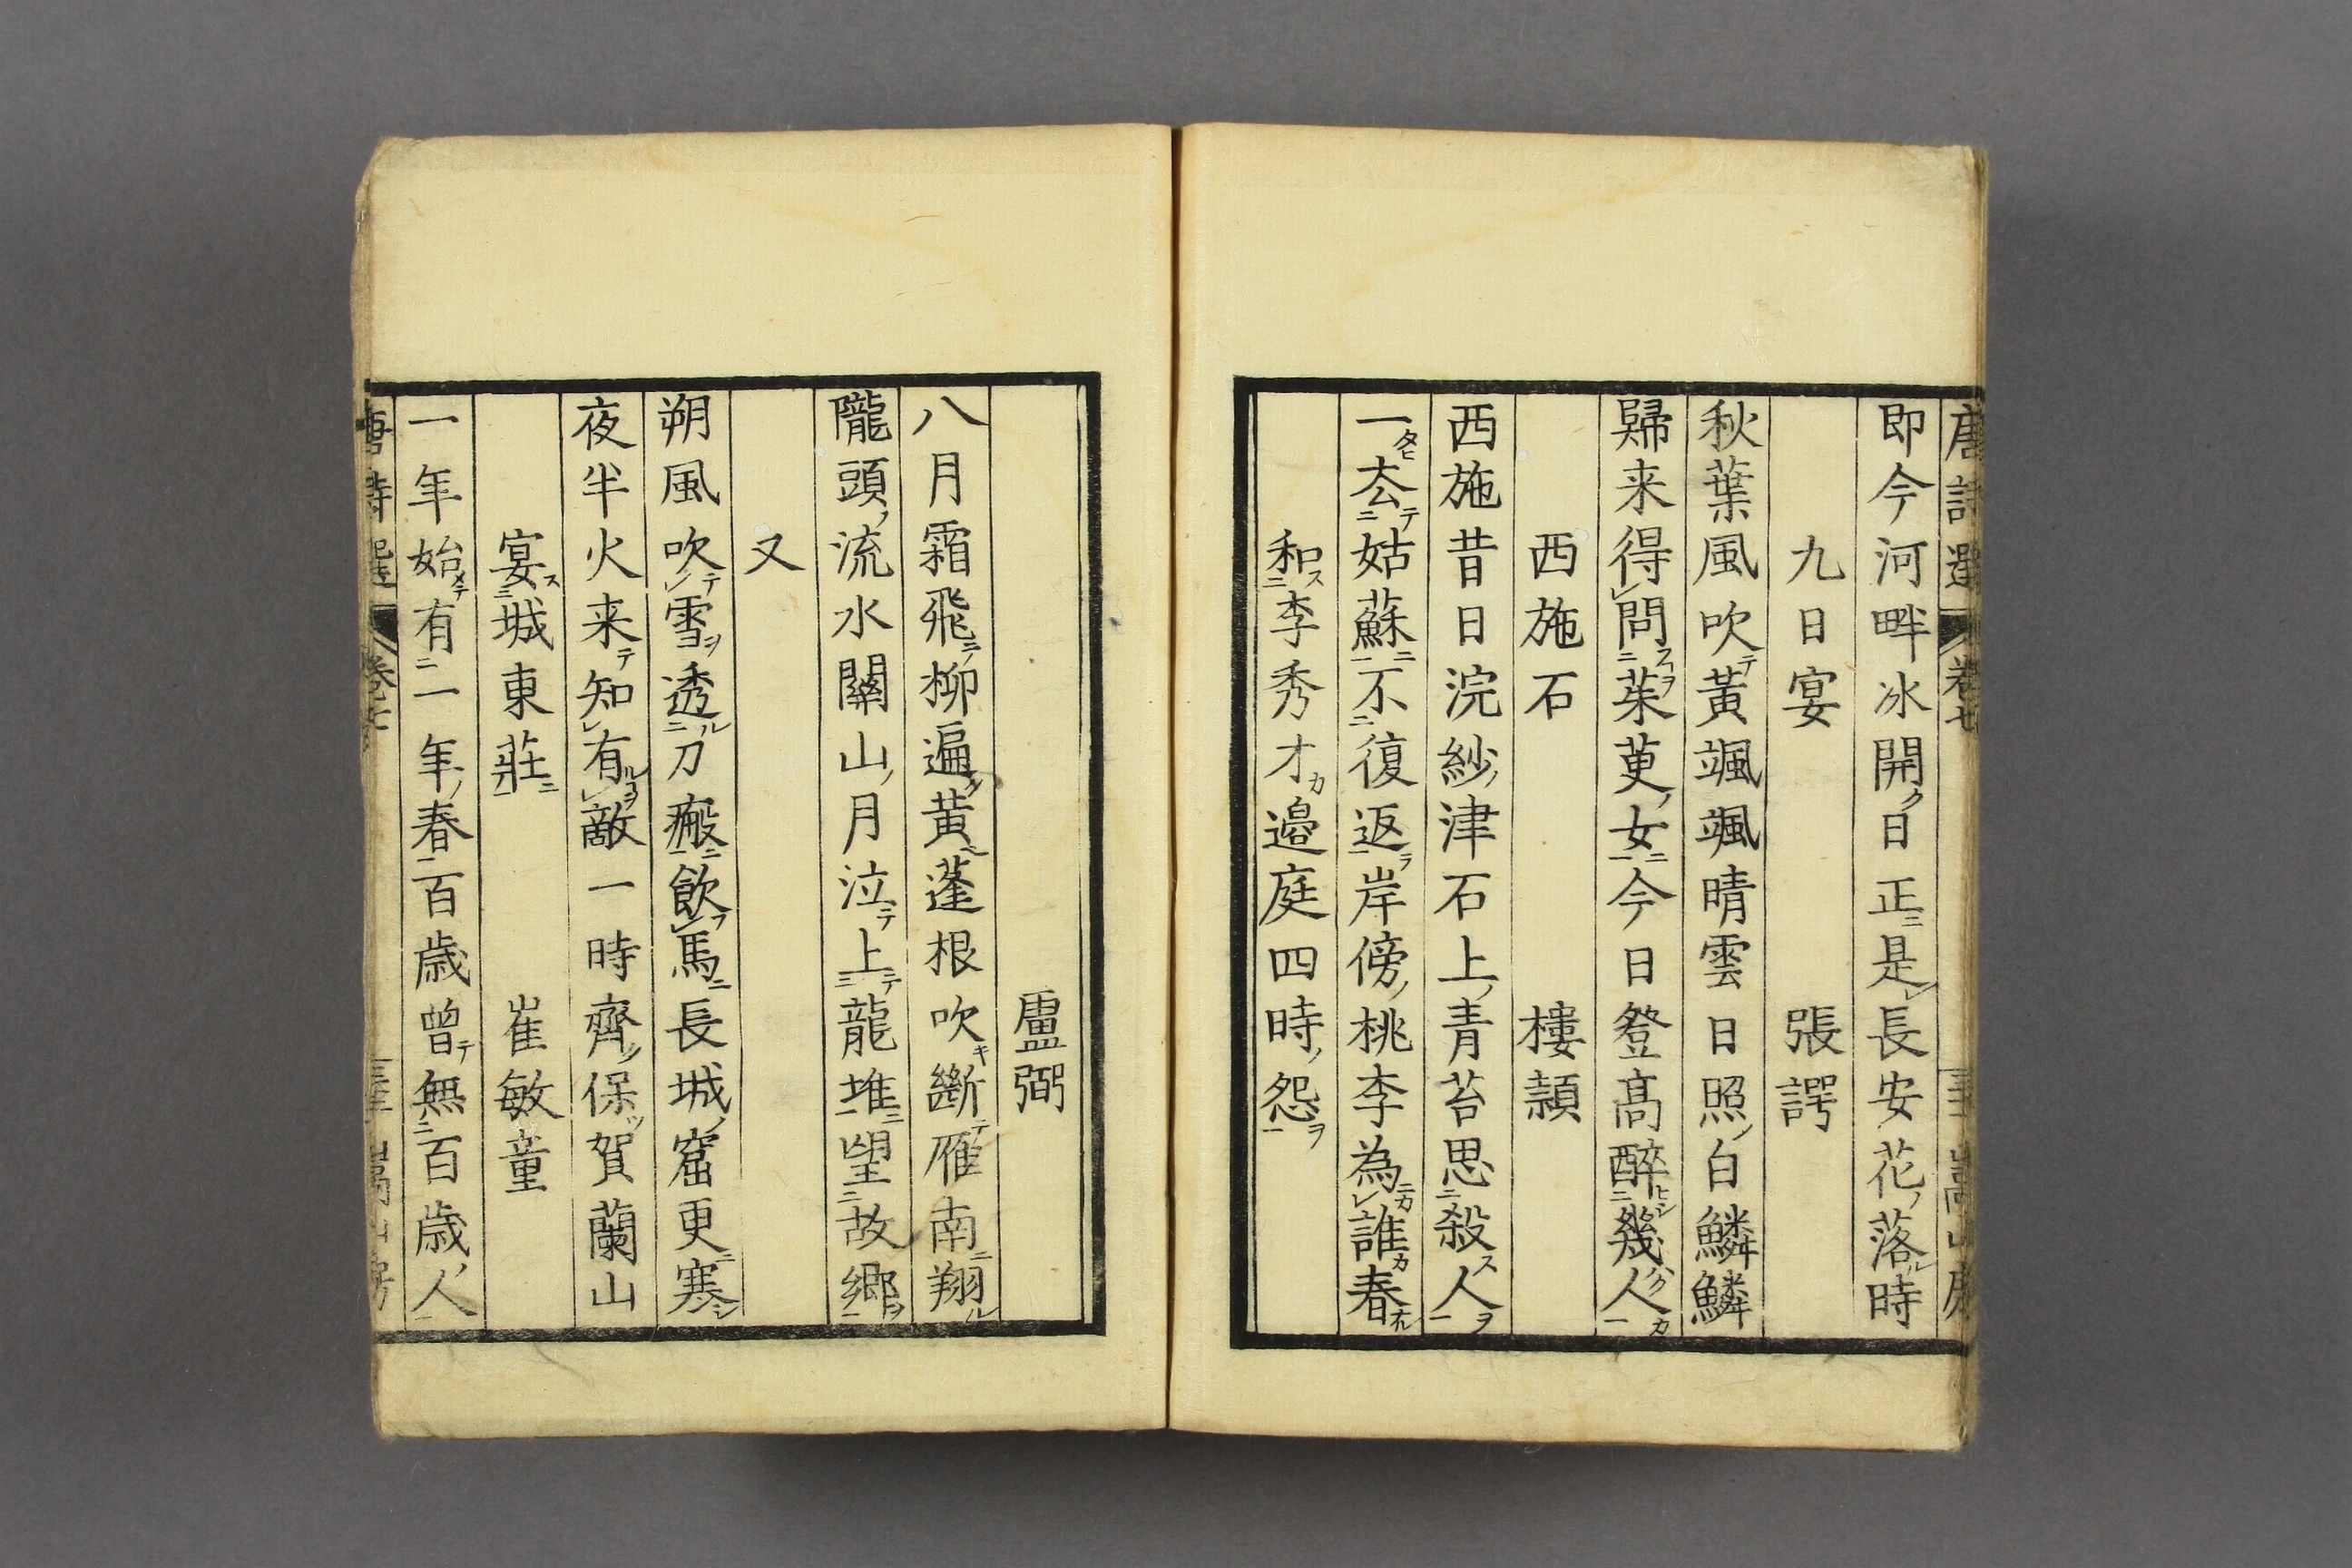 唐詩選 卷七 嵩山房
即今河畔冰開日正是長安花落時
九日宴 張諤
秋葉風吹黃颯颯晴雲日照白鱗鱗
歸来得問茱萸女今日登高醉幾人
西施石 樓頴
西施昔日浣紗津石上青苔思殺人
一去姑蘇不復返岸傍桃李為誰春
和李秀才邉庭四時怨
盧弼
八月霜飛柳遍黄蓬根吹斷雁南翔
隴頭流水關山月泣上龍堆望故郷
又
朔風吹雪透刀瘢飲馬長城窟更寒
夜半火来知有敵一時齊保賀蘭山
宴城東莊 崔敏童
一年始有一年春百歳曾無百歳人
唐詩選 卷七